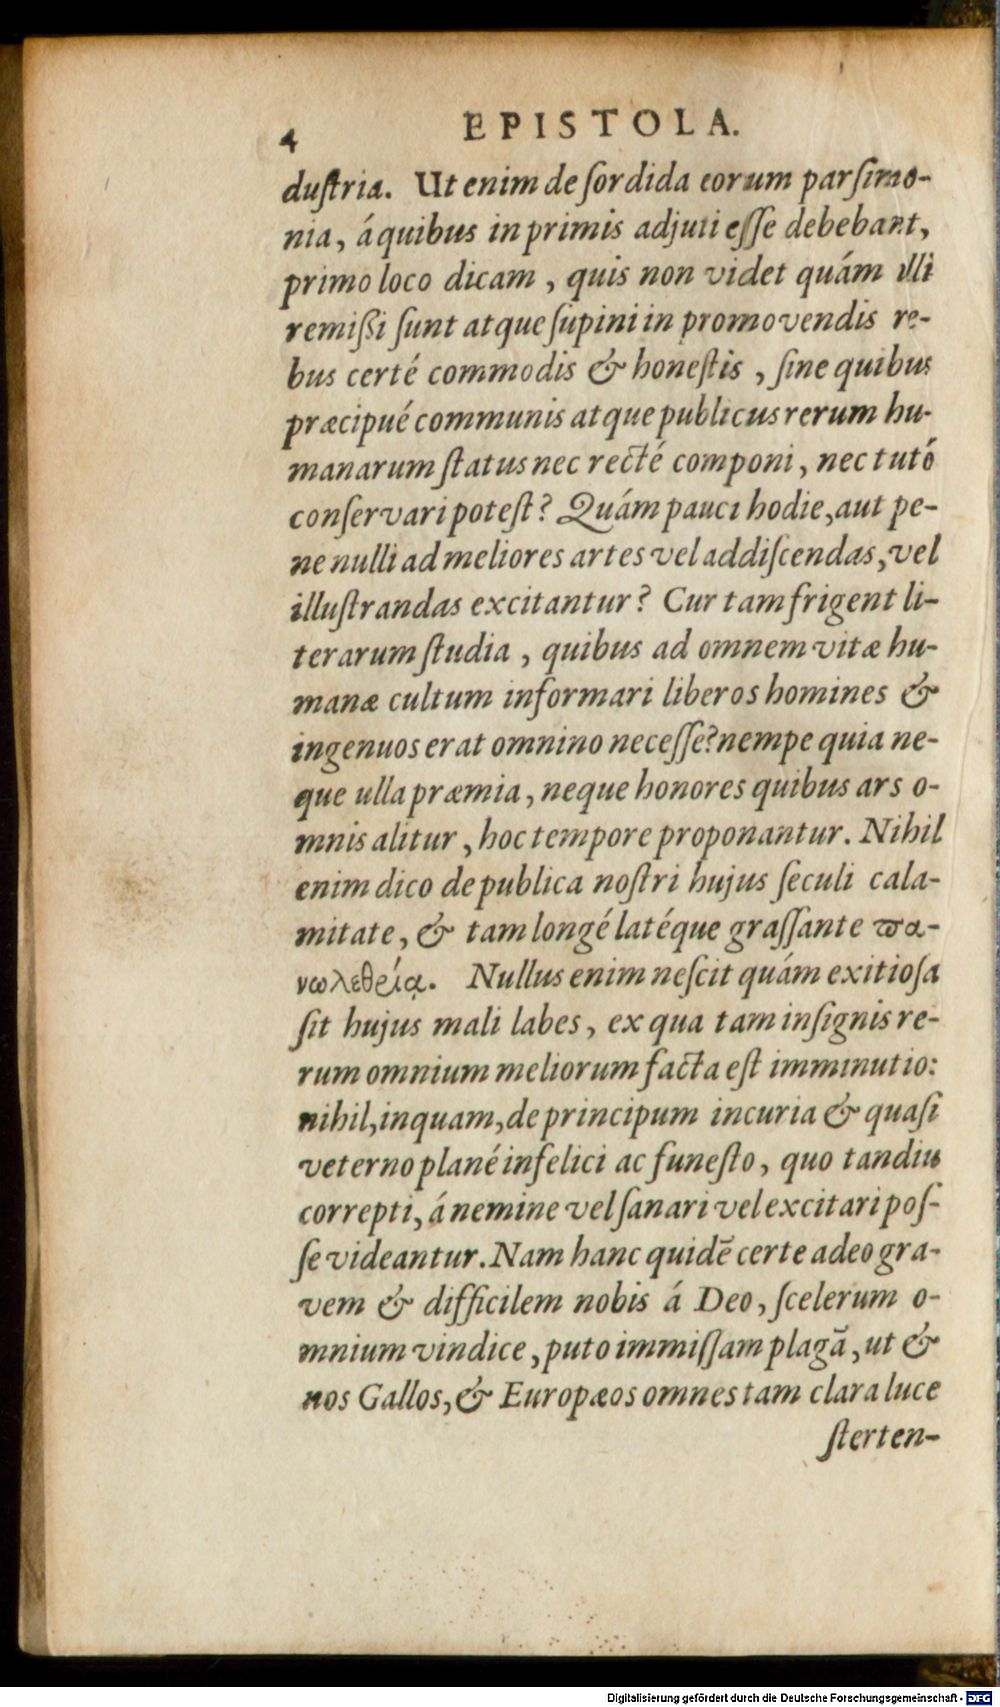 4
EPISTOLA.
duſtria. Ut enim de ſordida eorum parſimo-
nia, á quibus in primis adjuti eſſe debebant,
primo loco dicam, quis non videt quám illi
remißi ſunt atque ſupini in promovendis re-
bus certé commodis & honeſtis, ſine quibus
præcipué communis atque publicus rerum hu-
manarum ſtatus nec recté componi, nec tutó
conſervari poteſt? Quám pauci hodie, aut pe-
ne nulli ad meliores artes vel addiſcendas, vel
illuſtrandas excitantur? Cur tam frigent li-
terarum ſtudia, quibus ad omnem vitæ hu-
manæ cultum informari liberos homines &
ingenuos erat omnino neceſſe? nempe quia ne-
que ulla præmia, neque honores quibus ars o-
mnis alitur, hoc tempore proponantur. Nihil
enim dico de publica noſtri hujus ſeculi cala-
mitate, & tam longé latéque graſſante ϖα-
νωλεθρίᾳ. Nullus enim neſcit quám exitioſa
ſit hujus mali labes, ex qua tam inſignis re-
rum omnium meliorum facta eſt imminutio:
nihil, inquam, de principum incuria & quaſi
veterno plané infelici ac funeſto, quo tandiu
correpti, á nemine vel ſanari vel excitari poſ-
ſe videantur. Nam hanc quidē certe adeo gra-
vem & difficilem nobis á Deo, ſcelerum o-
mnium vindice, puto immiſſam plagā, ut &
nos Gallos, & Europæos omnes tam clara luce
ſterten-
Digitalisierung gefördert durch die Deutsche Forschungsgemeinschaft - DFG